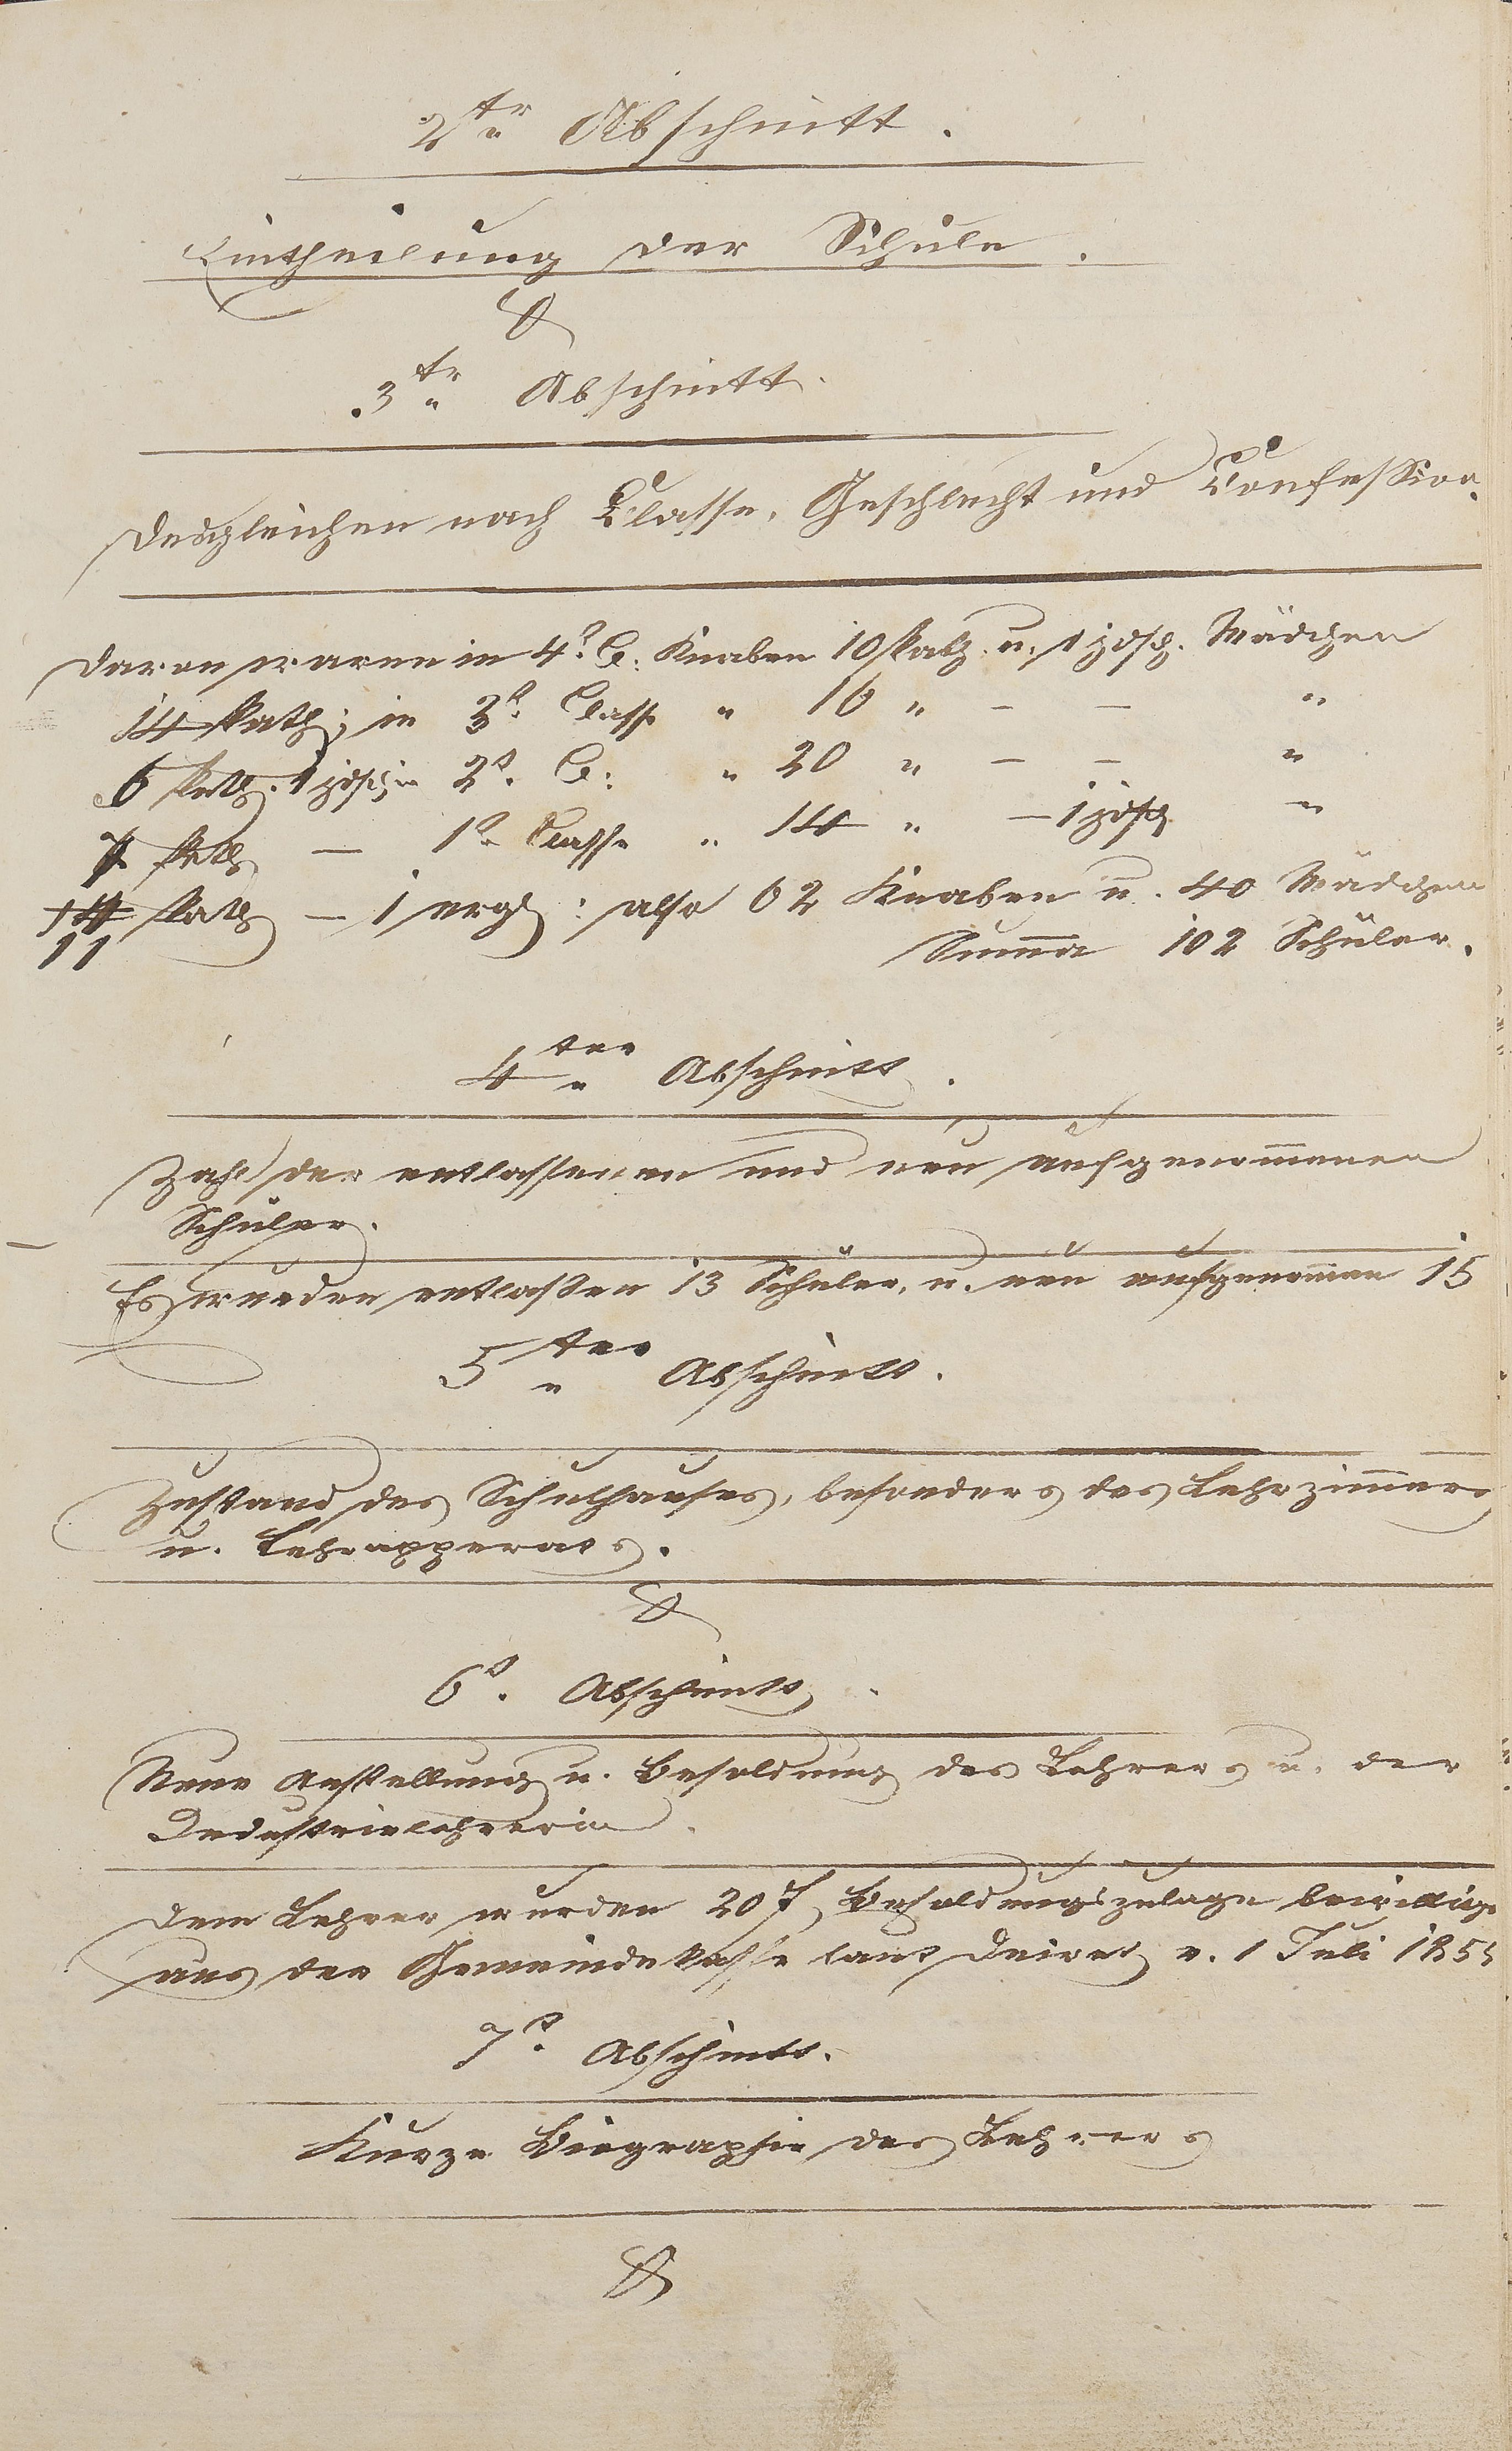 2ter Abschnitt.
Eintheilung der Schule.
3ter Abschnitt.
Desgleichen nach Classe, Geschlecht und Confession.
Davon waren in 4r Cl: Knaben 10 kath. u. 1 jdsch. Mädchen
14 kath; in 3r Classe " 16 " — — "
6 kath. 1 jdsch in 2r Cl: " 20 " — — "
7 kath — 1r Classe " 14 " — 1 jdsch "
11 kath — 1 evgl: also 62 Knaben u. 40 Mädchen
Summa 102 Schüler.
4ter Abschnitt.
Zahl der entlassenen und neu aufgenommenen
Schüler.
Es wurden entlaßen 13 Schüler, u. neu aufgenommen 15
5ter Abschnitt.
Zustand des Schulhauses, besonders des Lehrzimmers
u. Lehrapperats.
6r. Abschnitt.
Neue Anstellung u. Besoldung des Lehrers u. der
Industrielehrerin.
Dem Lehrer wurden 20 f Besoldungszulage bewilligt
aus der Gemeindekasse laut v. 1 Juli 185
7r. Abschnitt.
Kurze Biographie des Lehrers